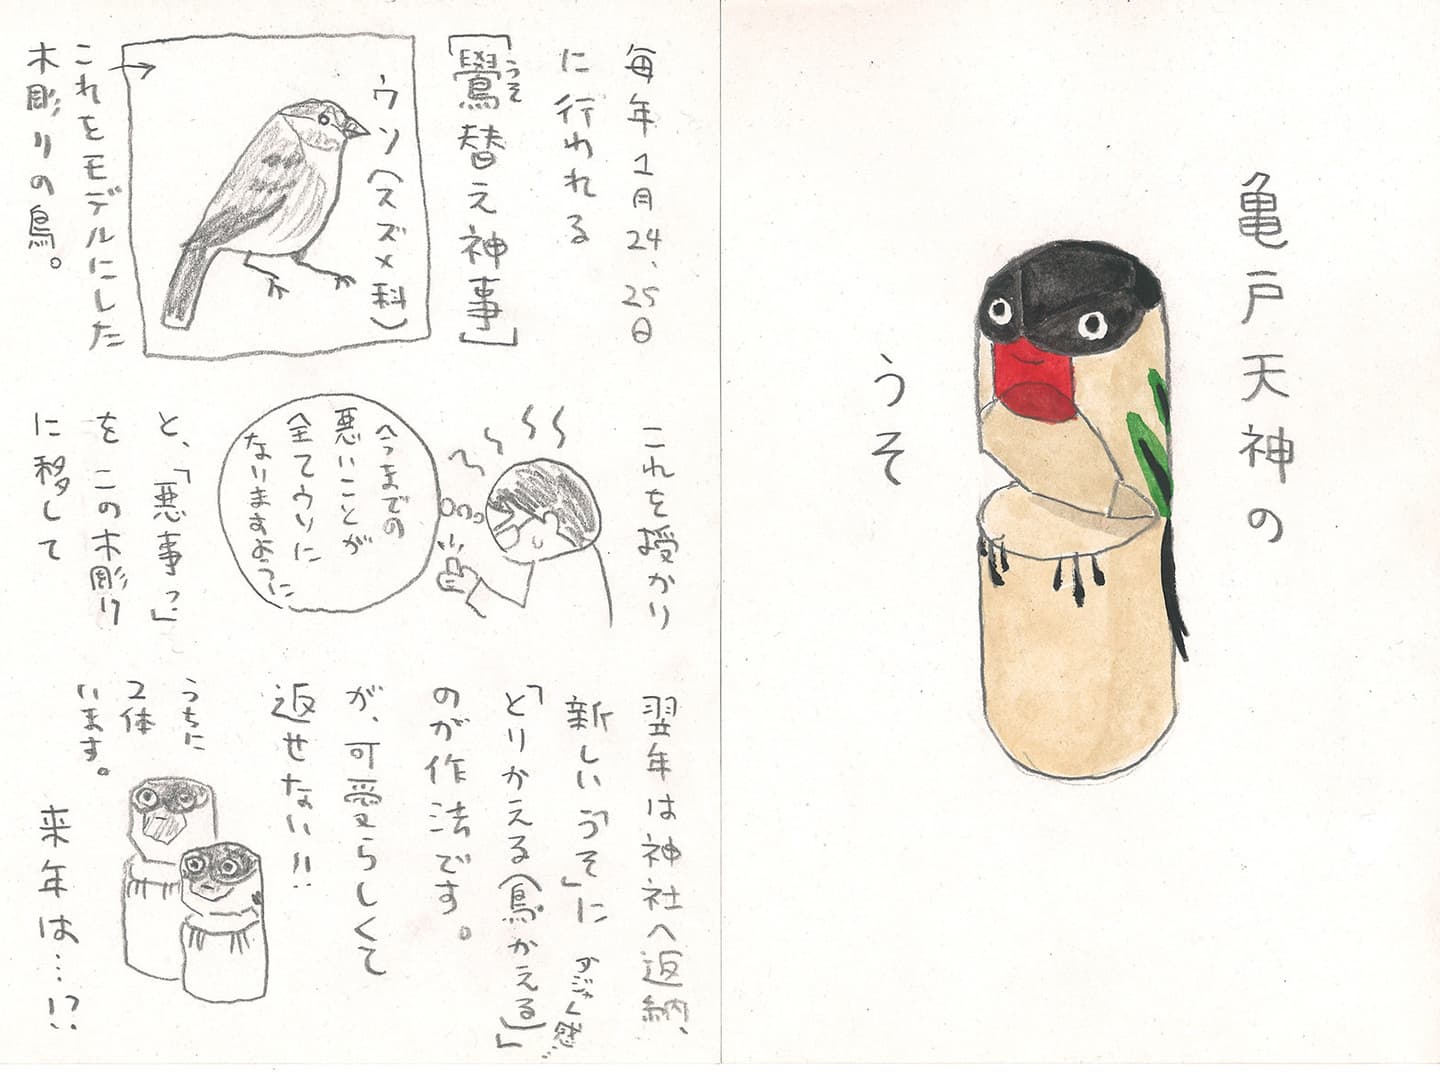 亀戸天神の
うそ
毎年1月24、25日
に行われる
「鷽替え神事」
うそ
ウソ(スズメ科)
これをモデルにした
木彫りの鳥。
これを授かり
今までの
悪いことが
全てウソに
なりますように
と、「悪事っ」
をこの木彫り
に移して
翌年は神社へ返納、
新しい「うそ」に
ダジャレ感…
「とりかえる(鳥かえる)」
のが作法です。
が、可愛らしくて
返せない!!
うちに
2体
います。
来年は…!?